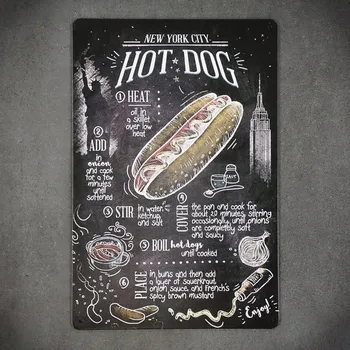 NEW YORK CITY
HOT DOG
1 HEAT
oil in a
skillet over
low heat
2
ADD
in
onion
and cook
for a few
minutes
until
softened
3 STIR
in water,
ketchup,
and salt
4
COVER
the pan and cook for
about 20 minutes, stirring
occasionally, until onions
are completely soft
and saucy
SALT
5 BOIL hot dogs
until cooked
6
PLACE
in buns and then add
a layer of sauerkraut,
onion sauce, and french's
spicy brown mustard
Enjoy!